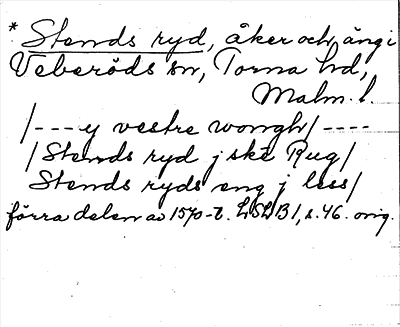 * Stends ryd, åker och äng i
Veberöds sn, Torna hd,
Malm. l.
/--- y vestre wongh/----
/Stends ryd j ske Rug/
Stends ryds eng j less/
förra delen av 1570-t. LSLB 1, s. 46. orig.